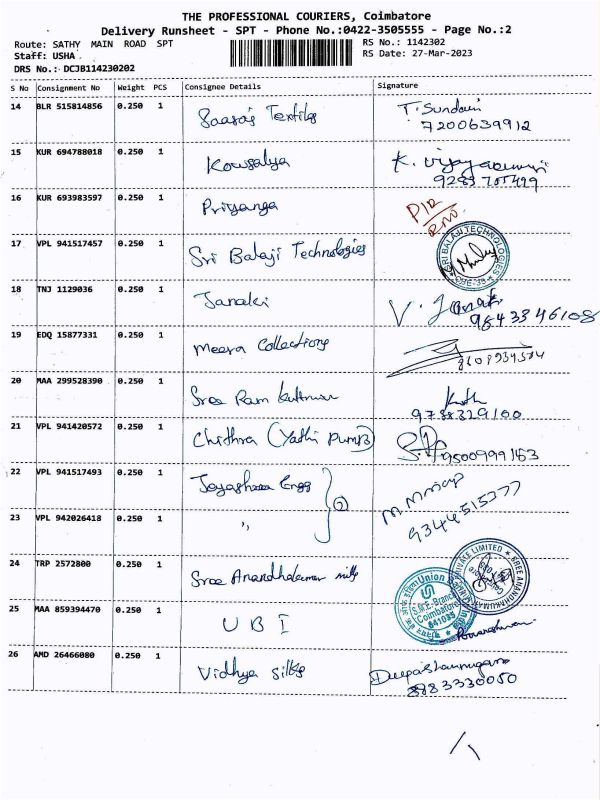 THE PROFESSIONAL COURIERS, Coimbatore
Delivery Runsheet - SPT - Phone No.:0422-3505555 - Page No.:2
Route: SATHY MAIN ROAD SPT RS No.: 1142302
Staff: USHA RS Date: 27-Mar-2023
DRS No.: DCJB114230202
S No Consignment No Weight PCS Consignee Details Signature
14 BLR 515814856 0.250 1 Textiles T. Sundari
7200639912
15 KUR 694788018 0.250 1 Kowsalya K.
16 KUR 693983597 0.250 1 Priyanga
17 VPL 941517457 0.250 1 Sri Balaji Technologies SRI BALAJI TECHNOLOGIES
18 TNJ 1129036 0.250 1 Janaki V. Janaki
9843346108
19 EDQ 15877331 0.250 1 Meera Collections
20 MAA 299528390 0.250 1 Sree Ram
21 VPL 941420572 0.250 1 Chithra (Yathi Pumps)
9500999163
22 VPL 941517493 0.250 1 Jayashree Engg 2
9344515277
23 VPL 942026418 0.250 1 "
24 TRP 2572800 0.250 1 Sree Anandhakumar mills
25 MAA 859394470 0.250 1 UBI Union
S.M.E. Branch
Coimbatore
641035
26 AMD 26466080 0.250 1 Vidhya silks
8883330050